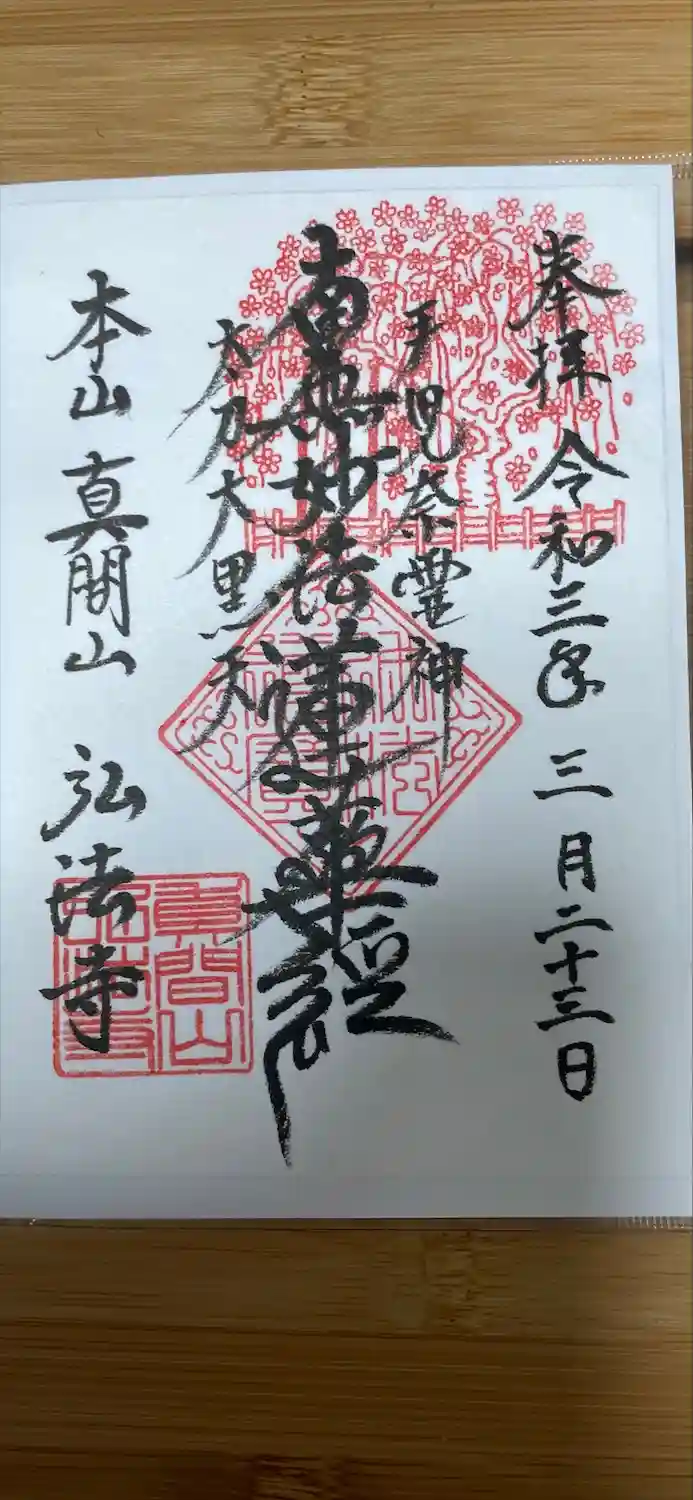 奉拝 令和三年 三月二十三日
手児奈霊神
南無妙法蓮華経
太刀大黒天
本山 真間山 弘法寺
真間山
弘法寺